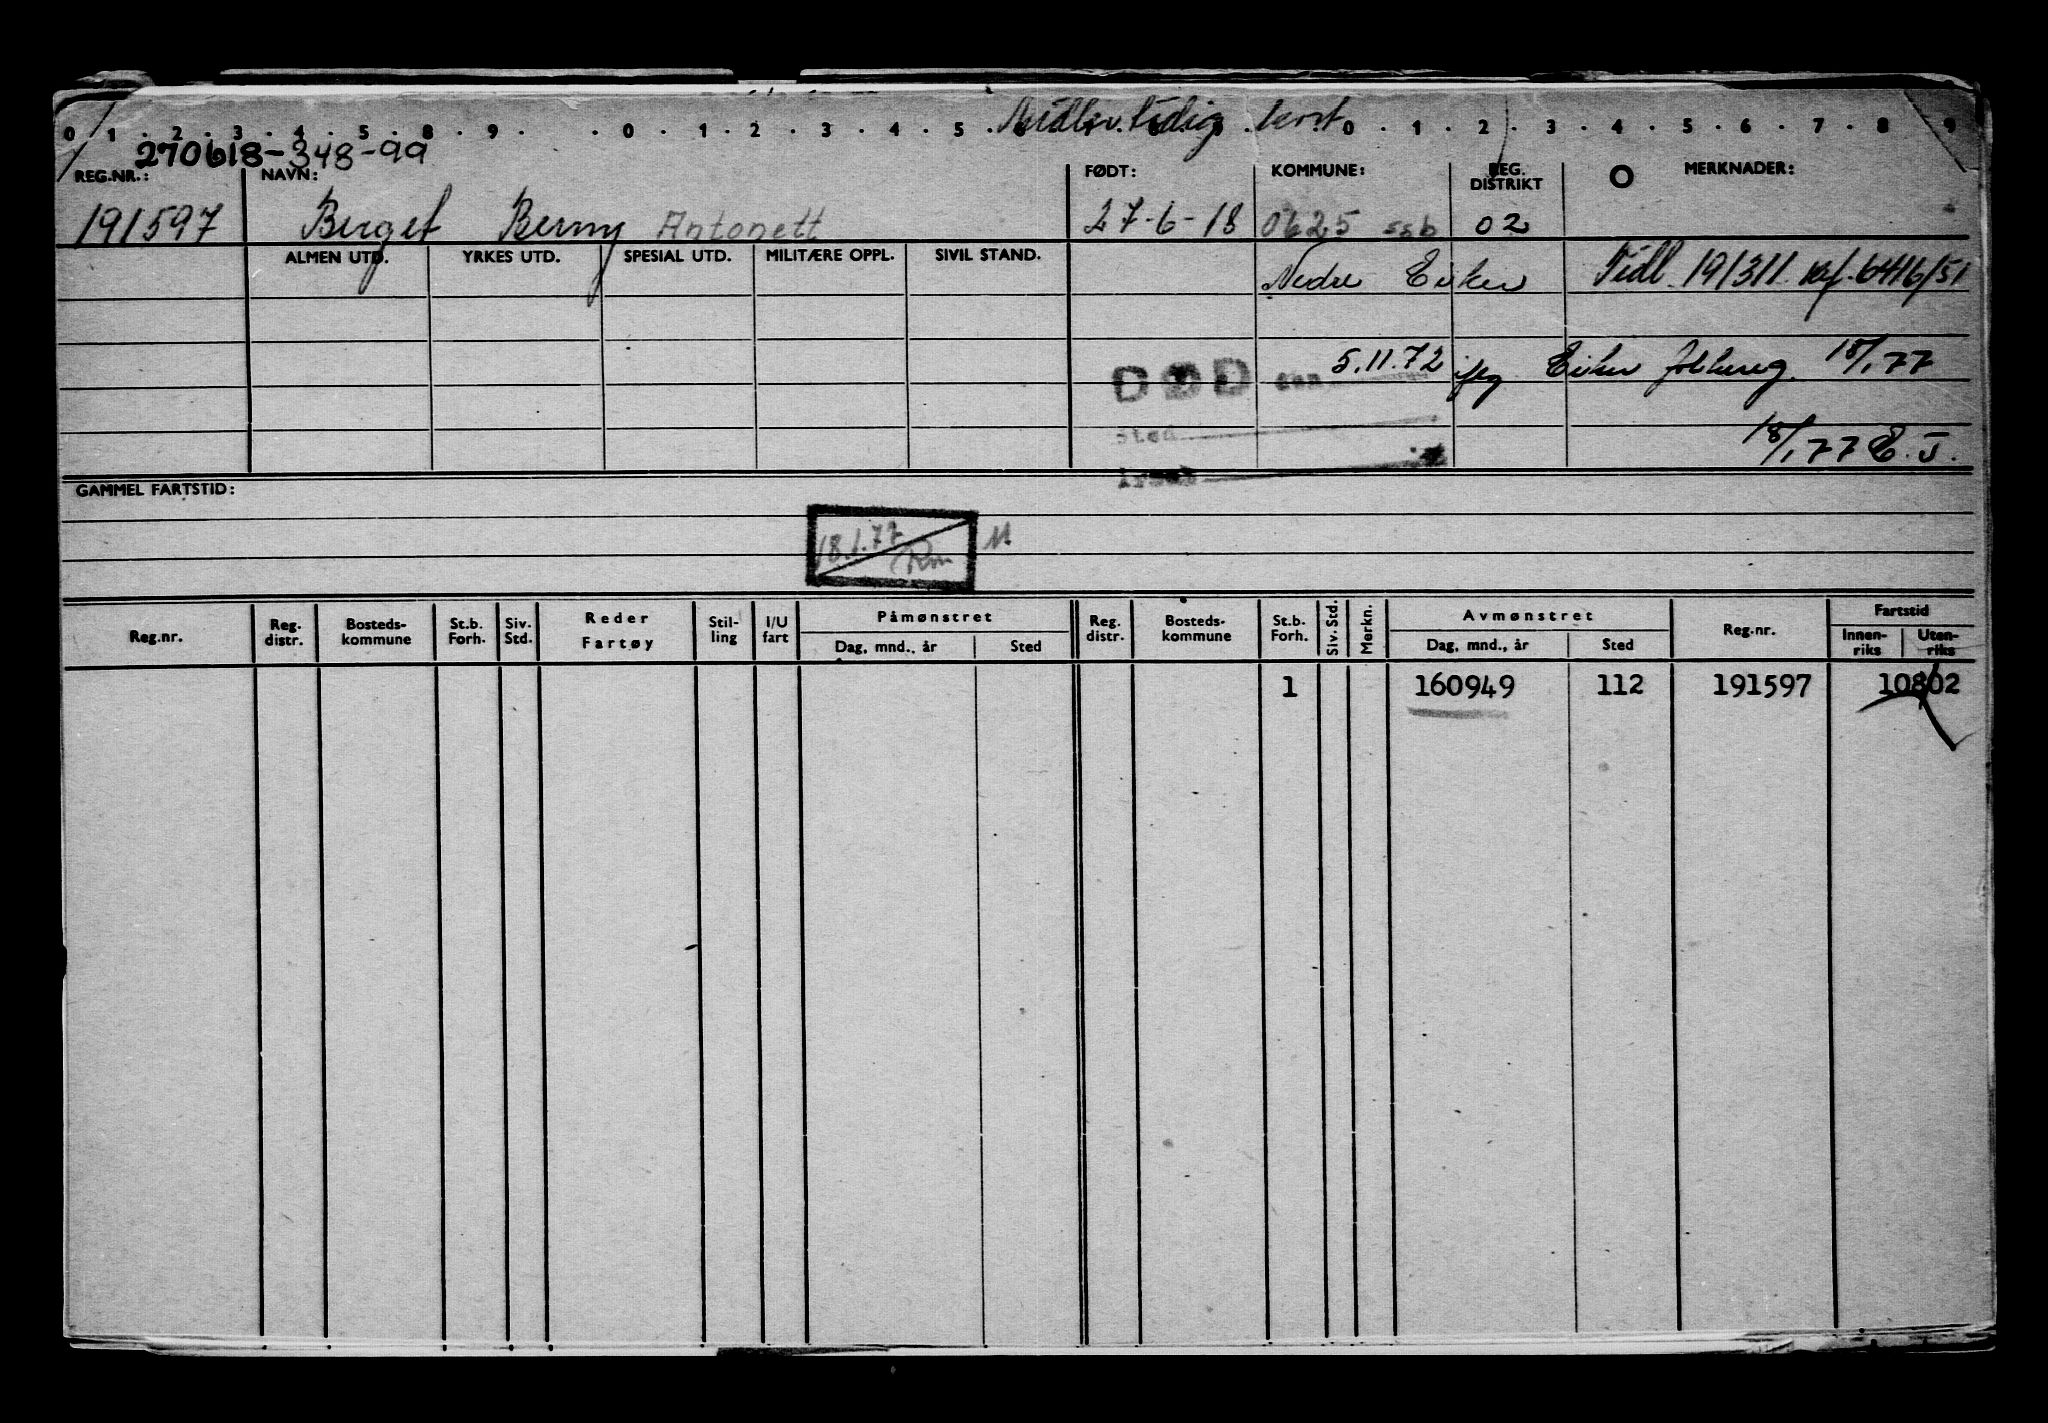 Midlertidig kort
0 1 . 2 . 3 . 4 . 5 . 8 . 9 . . 0 . 1 . 2 . 3 . 4 . 5 . 6 . 0 . 1 . 2 . 3 . 4 . 5 . 6 . 7 . 8 . 9
270618-348-99
REG.NR.: NAVN: FØDT: KOMMUNE: REG. DISTRIKT O MERKNADER:
191597 Berget Berny Antonett 27-6-18 0625 ssb 02
ALMEN UTD. YRKES UTD. SPESIAL UTD. MILITÆRE OPPL. SIVIL STAND. Nedre Eiker Tidl 191311 Kf. 6416/51
DØD den 5.11.72 ifg Eiker folkereg. 18/1 77
Sted
Årsak 18/1 77 E. J.
GAMMEL FARTSTID:
18.1.77 Rm M
Reg.nr. Reg. distr. Bosteds-kommune St.b. Forh. Siv. Std. Reder Fartøy Stil-ling I/U fart Påmønstret Dag, mnd., år Sted Reg. distr. Bosteds-kommune St.b. Forh. Siv. Std. Merkn. Avmønstret Dag, mnd., år Sted Reg.nr. Fartstid Innen-riks Uten-riks
1 160949 112 191597 10802